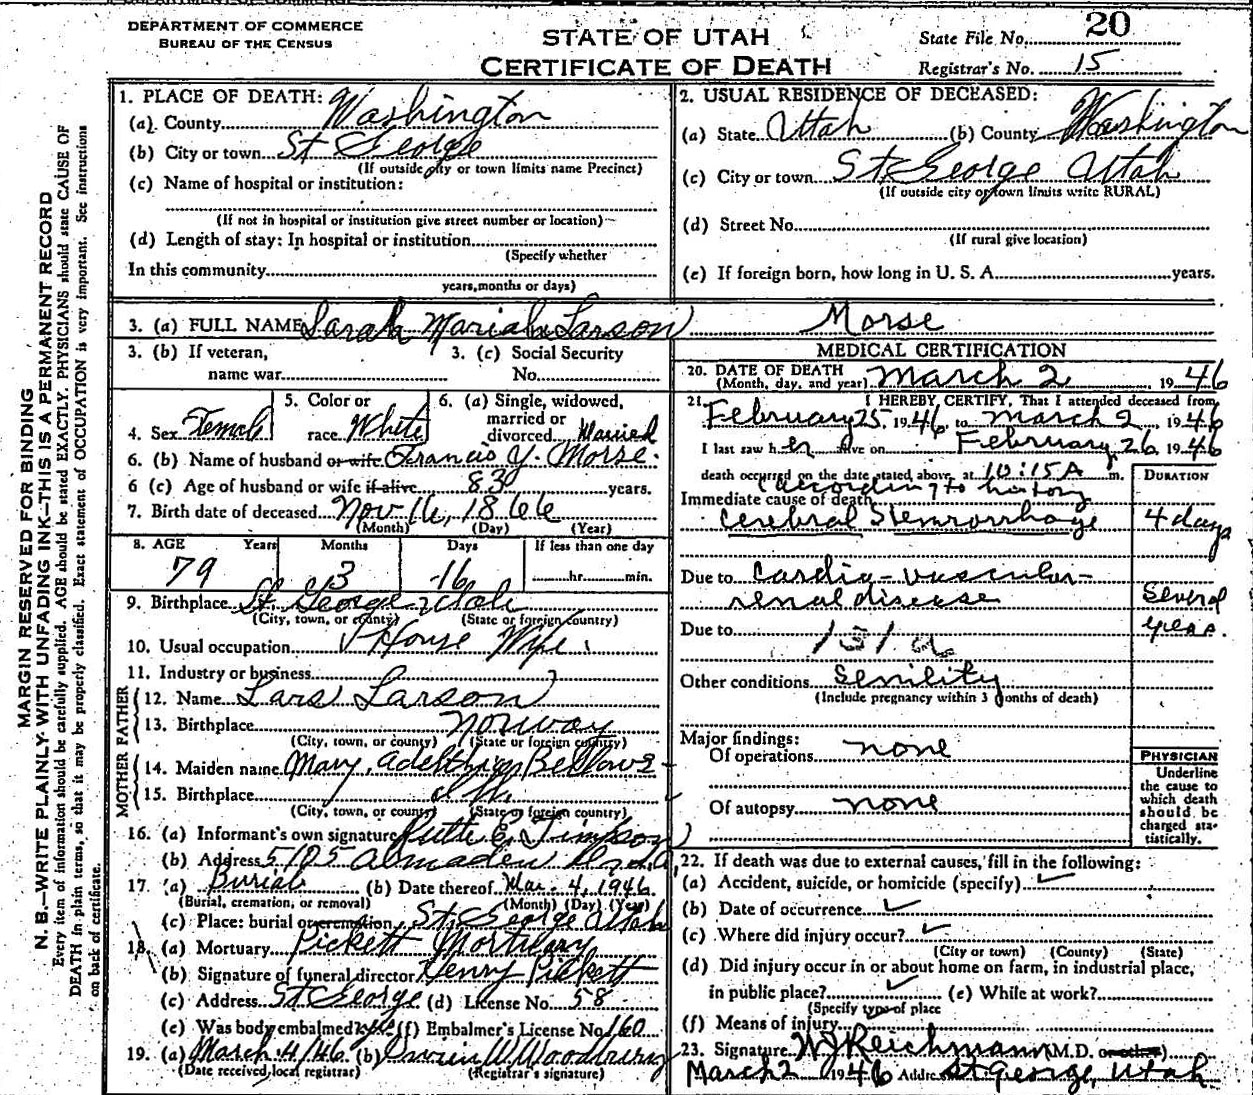 DEPARTMENT OF COMMERCE
BUREAU OF THE CENSUS
STATE OF UTAH
CERTIFICATE OF DEATH
State File No. 20
Registrar's No. 15
MARGIN RESERVED FOR BINDING
N. B.—WRITE PLAINLY WITH UNFADING INK—THIS IS A PERMANENT RECORD
Every item of information should be carefully supplied. AGE should be stated EXACTLY. PHYSICIANS should state CAUSE OF
DEATH in plain terms, so that it may be properly classified. Exact statement of OCCUPATION is very important. See instructions
on back of certificate.
1. PLACE OF DEATH:
(a) County Washington
(b) City or town St George
(If outside city or town limits name Precinct)
(c) Name of hospital or institution:
(If not in hospital or institution give street number or location)
(d) Length of stay: In hospital or institution
(Specify whether
In this community
years, months or days)
2. USUAL RESIDENCE OF DECEASED:
(a) State Utah (b) County Washington
(c) City or town St. George Utah
(If outside city or town limits write RURAL)
(d) Street No.
(If rural give location)
(e) If foreign born, how long in U. S. A. years.
3. (a) FULL NAME Sarah Mariah Larson Morse
3. (b) If veteran, name war
3. (c) Social Security No.
4. Sex Female
5. Color or race White
6. (a) Single, widowed, married or divorced Married
6. (b) Name of husband or wife Francis Y. Morse
6 (c) Age of husband or wife if alive 83 years.
7. Birth date of deceased Nov 16, 1866
(Month) (Day) (Year)
8. AGE Years Months Days If less than one day
79 3 16 hr. min.
9. Birthplace St. George Utah
(City, town, or county) (State or foreign country)
10. Usual occupation House Wife
11. Industry or business
FATHER
12. Name Lars Larson
13. Birthplace Norway
(City, town, or county) (State or foreign country)
MOTHER
14. Maiden name Mary Bellows
15. Birthplace
(City, town, or county) (State or foreign country)
16. (a) Informant's own signature Ruth E. Timpson
(b) Address 5105 Almaden
17. (a) Burial (b) Date thereof Mar. 4, 1946
(Burial, cremation, or removal) (Month) (Day) (Year)
(c) Place: burial or cremation St. George Utah
18. (a) Mortuary Pickett Mortuary
(b) Signature of funeral director Henry Pickett
(c) Address St George (d) License No. 58
(e) Was body embalmed yes (f) Embalmer's License No. 160
19. (a) March 4/46 (b) W. Woodbury
(Date received local registrar) (Registrar's signature)
MEDICAL CERTIFICATION
20. DATE OF DEATH
(Month, day, and year) March 2 19 46
21. I HEREBY CERTIFY, That I attended deceased from
February 25, 1946, to March 2, 1946
I last saw her alive on February 26, 1946
death occurred on the date stated above, at 10:15 A m.
according to history
DURATION
Immediate cause of death
Cerebral Hemorrhage 4 days
Due to cardio-vascular-
renal disease Several years.
Due to 131a
Other conditions Senility
(Include pregnancy within 3 months of death)
Major findings:
Of operations none
Of autopsy none
PHYSICIAN
Underline
the cause to
which death
should be
charged sta-
tistically.
22. If death was due to external causes, fill in the following:
(a) Accident, suicide, or homicide (specify)
(b) Date of occurrence
(c) Where did injury occur?
(City or town) (County) (State)
(d) Did injury occur in or about home on farm, in industrial place,
in public place? (e) While at work?
(Specify type of place
(f) Means of injury
23. Signature W J Reichmann (M.D. or other)
March 2 1946 Addre St George, Utah